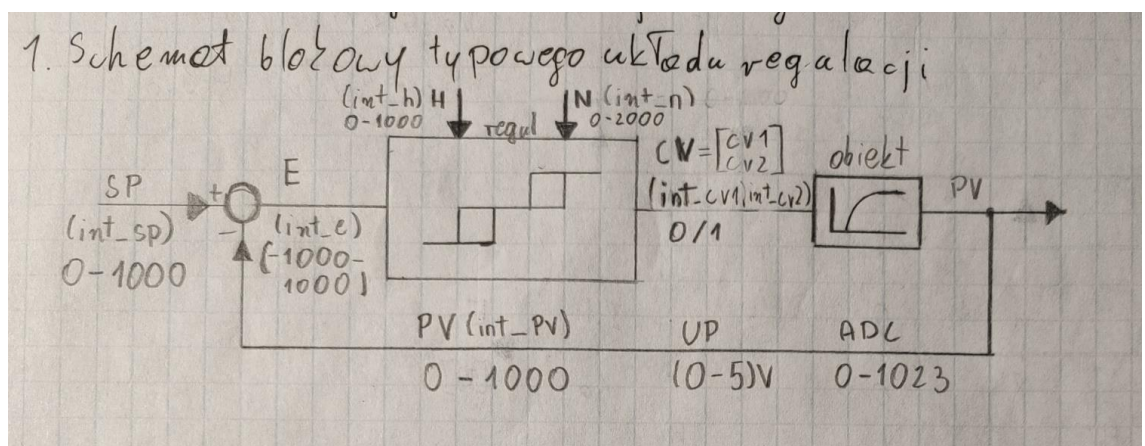 1. Schemat blokowy typowego układu regalacji
(int_h) H
0-1000
regul
N (int_n)
0-2000
SP
(int_sp)
0-1000
+
-
E
(int_e)
(-1000-
1000)
CV=[CV1
CV2]
(int_cv1,int_cv2)
0/1
obiekt
PV
PV (int_PV)
0-1000
UP
(0-5)V
ADC
0-1023